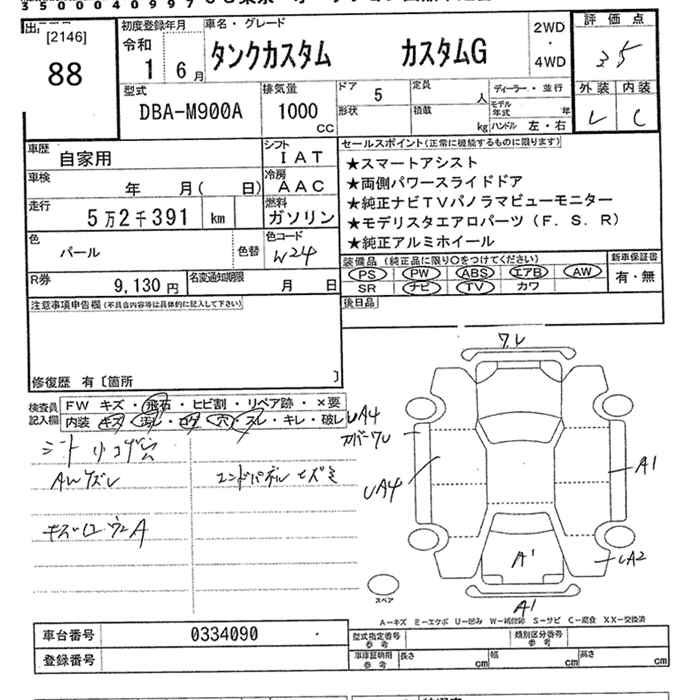 3 5 0 0 0 4 0 9 9 7
[2146]
88
初度登録年月
令和
1 6月
車名・グレード
タンクカスタム カスタムG
2WD
・
4WD
評価点
3.5
外装 内装
C
型式
DBA-M900A
排気量
1000
cc
ドア 5
形状
定員
人
積載
kg
ディーラー・並行
モデル年式 年
ハンドル 左・右
車歴 自家用
シフト IAT
車検 年 月( 日)
冷房 AAC
走行 5万2千391 km
燃料 ガソリン
色 パール 色替
色コード W24
R券 9,130円
名変通知期限 月 日
セールスポイント(正常に機能するものに限ります)
★スマートアシスト
★両側パワースライドドア
★純正ナビTVパノラマビューモニター
★モデリスタエアロパーツ(F.S.R)
★純正アルミホイール
装備品(純正品に限り○をつけてください)
PS PW ABS エアB AW
SR ナビ TV カワ
新車保証書
有・無
後日品
注意事項申告欄(不具合内容等は具体的に記入して下さい)
修復歴 有〔箇所 〕
検査員記入欄
FW キズ・飛石・ヒビ割・リペア跡・×要
内装 キズ・汚レ・コゲ・穴・スレ・キレ・破レ
シート小コゲ穴
AWズレ
エンドパネルヒズミ
ワレ
UA4
カバーワレ
UA4
A1
A1
UA2
A1
スペア
A―キズ E―エクボ U―凹み W―補修跡 S―サビ C―腐食 XX―交換済
車台番号 0334090
登録番号
型式指定番号
参考
類別区分番号
参考
車庫証明用
参考
長さ cm
幅 cm
高さ cm